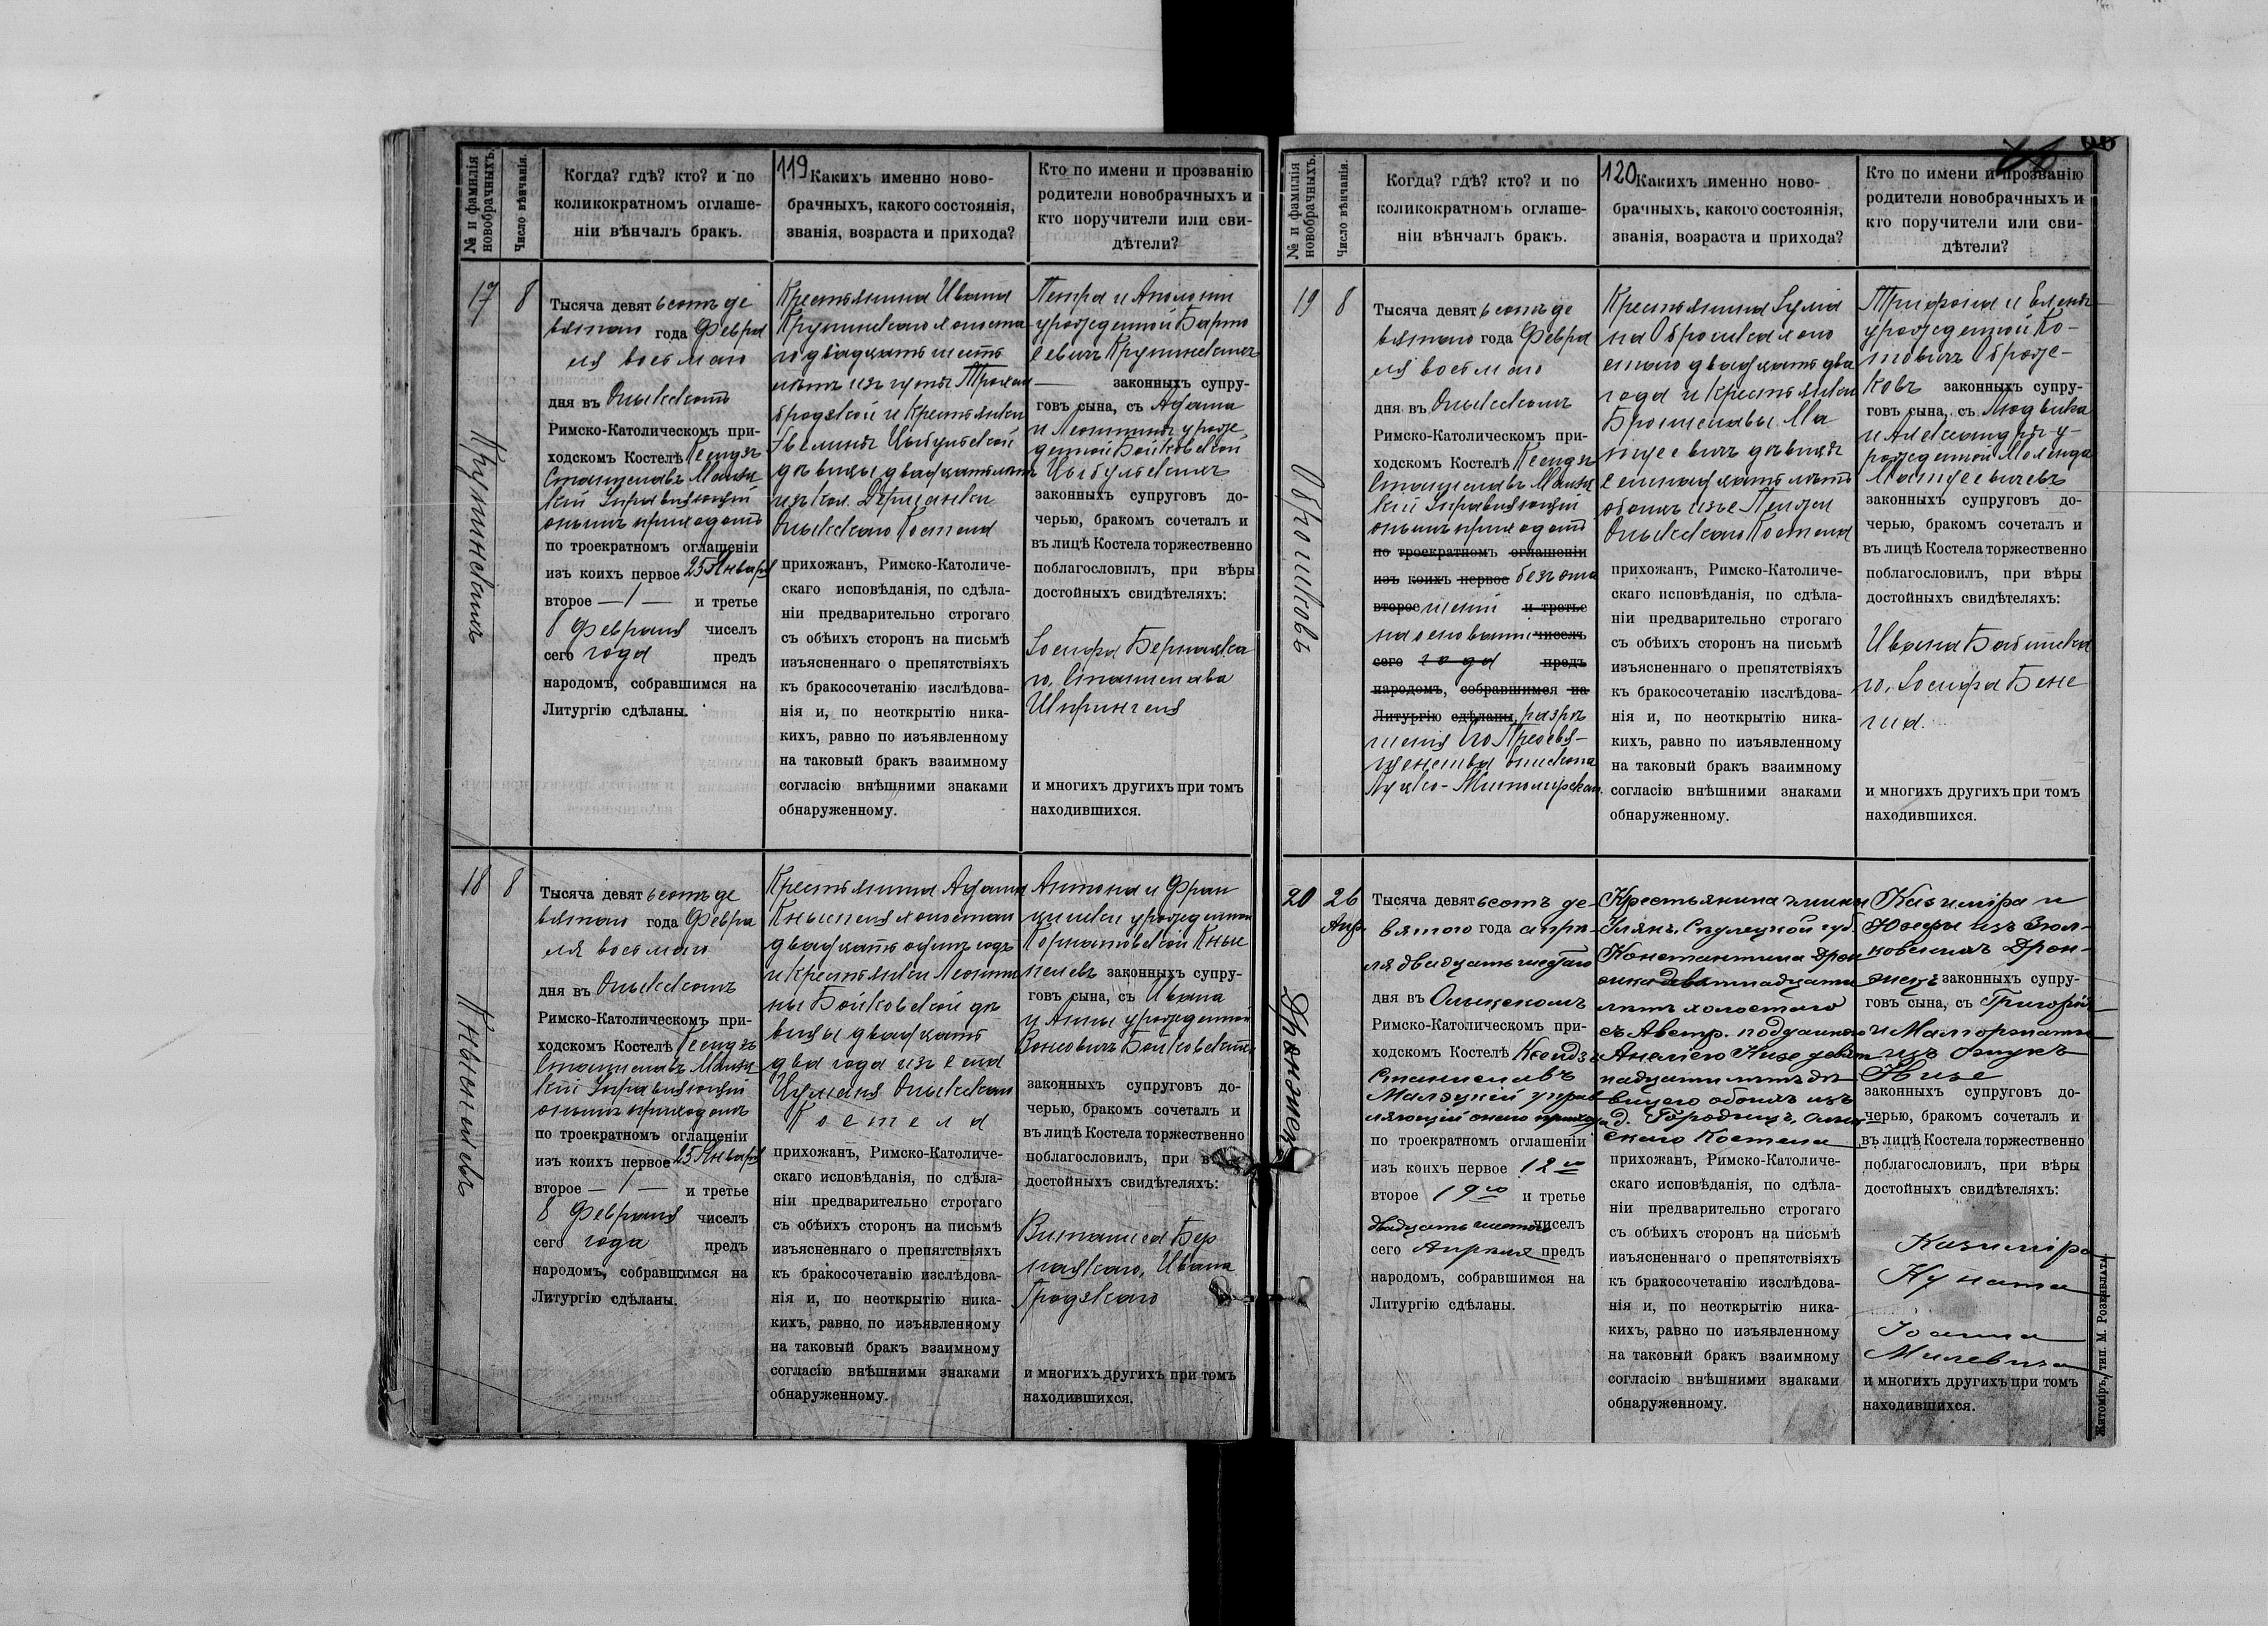 119
№ и фамилія новобрачныхъ.
Число вѣнчанія.
Когда? гдѣ? кто? и по
коликократномъ оглаше-
ніи вѣнчалъ бракъ.
Какихъ именно ново-
брачныхъ, какого состоянія,
званія, возраста и прихода?
Кто по имени и прозванію
родители новобрачныхъ и
кто поручители или сви-
дѣтели?
17
8
Крупинскихъ
Тысяча девятьсотъ де
вятаго года Февра
ля восьмаго
дня въ Олыкскомъ
Римско-Католическомъ при-
ходскомъ Костелѣ Ксендзъ
Станиславъ
Управляющій
онымъ приходомъ
по троекратномъ оглашеніи
изъ коихъ первое 25 Января
второе — 1 — и третье
8 Февраля чиселъ
сего года предъ
народомъ, собравшимся на
Литургію сдѣланы.
Крестьянина Ивана
Крупинскаго холоста
го двадцать шесть
лѣтъ изъ
и Крестьянки
Эвелины Цыбульской
дѣвицы двадцать лѣтъ
изъ кол.
Олыкскаго Костела
прихожанъ, Римско-Католиче-
скаго исповѣданія, по сдѣла-
ніи предварительно строгаго
съ обѣихъ сторонъ на письмѣ
изъясненнаго о препятствіяхъ
къ бракосочетанію изслѣдова-
нія и, по неоткрытію ника-
кихъ, равно по изъявленному
на таковый бракъ взаимному
согласію внѣшними знаками
обнаруженному.
Петра и Аполоніи
урожденной Барто
севичъ Крупинскихъ
— законныхъ супру-
говъ сына, съ Адама
и Леонтины урож
денной Бойковской
Цыбульскихъ
законныхъ супруговъ до-
черью, бракомъ сочеталъ и
въ лицѣ Костела торжественно
поблагословилъ, при вѣры
достойныхъ свидѣтеляхъ:
Іосифа Бернацка
го, Станислава
Шпрингеля
и многихъ другихъ при томъ
находившихся.
18
8
Тысяча девятьсотъ де
вятаго года Февра
ля восьмаго
дня въ Олыкскомъ
Римско-Католическомъ при-
ходскомъ Костелѣ Ксендзъ
Станиславъ
Управляющій
онымъ приходомъ
по троекратномъ оглашеніи
изъ коихъ первое 25 Января
второе — 1 — и третье
8 Февраля чиселъ
сего года предъ
народомъ, собравшимся на
Литургію сдѣланы.
Крестьянина Адама
холостаго
двадцать одинъ годъ
и Крестьянки Леонти
ны Бойковской дѣ
вицы двадцать
два года изъ села
Цуманя Олыкскаго
Костела
прихожанъ, Римско-Католиче-
скаго исповѣданія, по сдѣла-
ніи предварительно строгаго
съ обѣихъ сторонъ на письмѣ
изъясненнаго о препятствіяхъ
къ бракосочетанію изслѣдова-
нія и, по неоткрытію ника-
кихъ, равно по изъявленному
на таковый бракъ взаимному
согласію внѣшними знаками
обнаруженному.
Антона и Фран
цишки урожденной
законныхъ супру-
говъ сына, съ Ивана
и Анны урожденной
Бойковскихъ
законныхъ супруговъ до-
черью, бракомъ сочеталъ и
въ лицѣ Костела торжественно
поблагословилъ, при
достойныхъ свидѣтеляхъ:
Бер
нацкаго, Ивана
Гродзкаго
и многихъ другихъ при томъ
находившихся.
120
№ и фамилія новобрачныхъ.
Число вѣнчанія.
Когда? гдѣ? кто? и по
коликократномъ оглаше-
ніи вѣнчалъ бракъ.
Какихъ именно ново-
брачныхъ, какого состоянія,
званія, возраста и прихода?
Кто по имени и прозванію
родители новобрачныхъ и
кто поручители или сви-
дѣтели?
19
8
Тысяча девятьсотъ де
вятаго года Февра
ля восьмаго
дня въ Олыкскомъ
Римско-Католическомъ при-
ходскомъ Костелѣ Ксендзъ
Станиславъ
Управляющій
онымъ приходомъ
по троекратномъ оглашеніи
изъ коихъ первое безъ огла
второе шеній и третье
на основаніи чиселъ
сего года предъ
народомъ, собравшимся на
Литургію сдѣланы, разрѣ
шенія Его Преосвя-
щенства Епископа
Луцко-Житомірскаго.
Крестьянина Юліа
на холо
стаго двадцать два
года и Крестьянки
Брониславы Ма
цеевичъ дѣвицы
лѣтъ
обоихъ изъ
Олыкскаго Костела
прихожанъ, Римско-Католиче-
скаго исповѣданія, по сдѣла-
ніи предварительно строгаго
съ обѣихъ сторонъ на письмѣ
изъясненнаго о препятствіяхъ
къ бракосочетанію изслѣдова-
нія и, по неоткрытію ника-
кихъ, равно по изъявленному
на таковый бракъ взаимному
согласію внѣшними знаками
обнаруженному.
Трифона и Елены
урожденной
законныхъ супру-
говъ сына, съ Людвика
и Александры у-
рожденной
законныхъ супруговъ до-
черью, бракомъ сочеталъ и
въ лицѣ Костела торжественно
поблагословилъ, при вѣры
достойныхъ свидѣтеляхъ:
Ивана
го, Іосифа
и многихъ другихъ при томъ
находившихся.
20
26
Апр.
Тысяча девятьсотъ де-
вятого года апрѣ-
ля двадцать шестаго
дня въ Олыцкомъ
Римско-Католическомъ
ходскомъ Костелѣ Ксендзъ
Станиславъ
управ
ляющій онаго прихода
по троекратномъ оглашеніи
изъ коихъ первое 12го
второе 19го и третье
двадцать шестого чиселъ
сего Апрѣля предъ
народомъ, собравшимся на
Литургію сдѣланы.
Крестьянина
губ.
Константина
лѣтъ холостаго
съ Австр. подданною
Анелею
лѣтъ дѣ-
вицею обоихъ изъ
д. Олыц
скаго Костела
прихожанъ, Римско-Католиче-
скаго исповѣданія, по сдѣла-
ніи предварительно строгаго
съ обѣихъ сторонъ на письмѣ
изъясненнаго о препятствіяхъ
къ бракосочетанію изслѣдова-
нія и, по неоткрытію ника-
кихъ, равно по изъявленному
на таковый бракъ взаимному
согласію внѣшними знаками
обнаруженному.
Казиміра и
Юзефы изъ
законныхъ супру-
говъ сына, съ Григорія
и Малгоржаты
изъ
законныхъ супруговъ до-
черью, бракомъ сочеталъ и
въ лицѣ Костела торжественно
поблагословилъ, при вѣры
достойныхъ свидѣтеляхъ:
Казиміра
Іоанна
Милевича
и многихъ другихъ при томъ
находившихся.
Житоміръ, тип. М. Розенблата